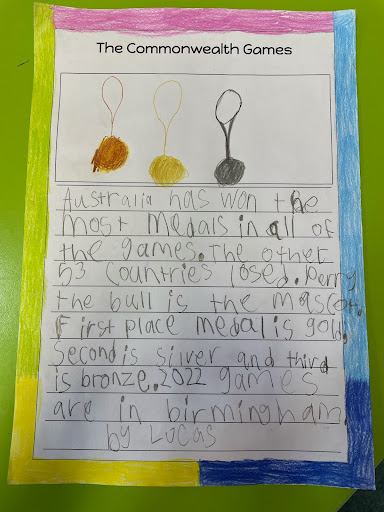 The Commonwealth Games
Australia has won the
most medals in all of
the games. The other
53 countries losed. Perry
the bull is the mascot.
First place medal is gold,
second is silver and third
is bronze. 2022 games
are in birmingham
by Lucas